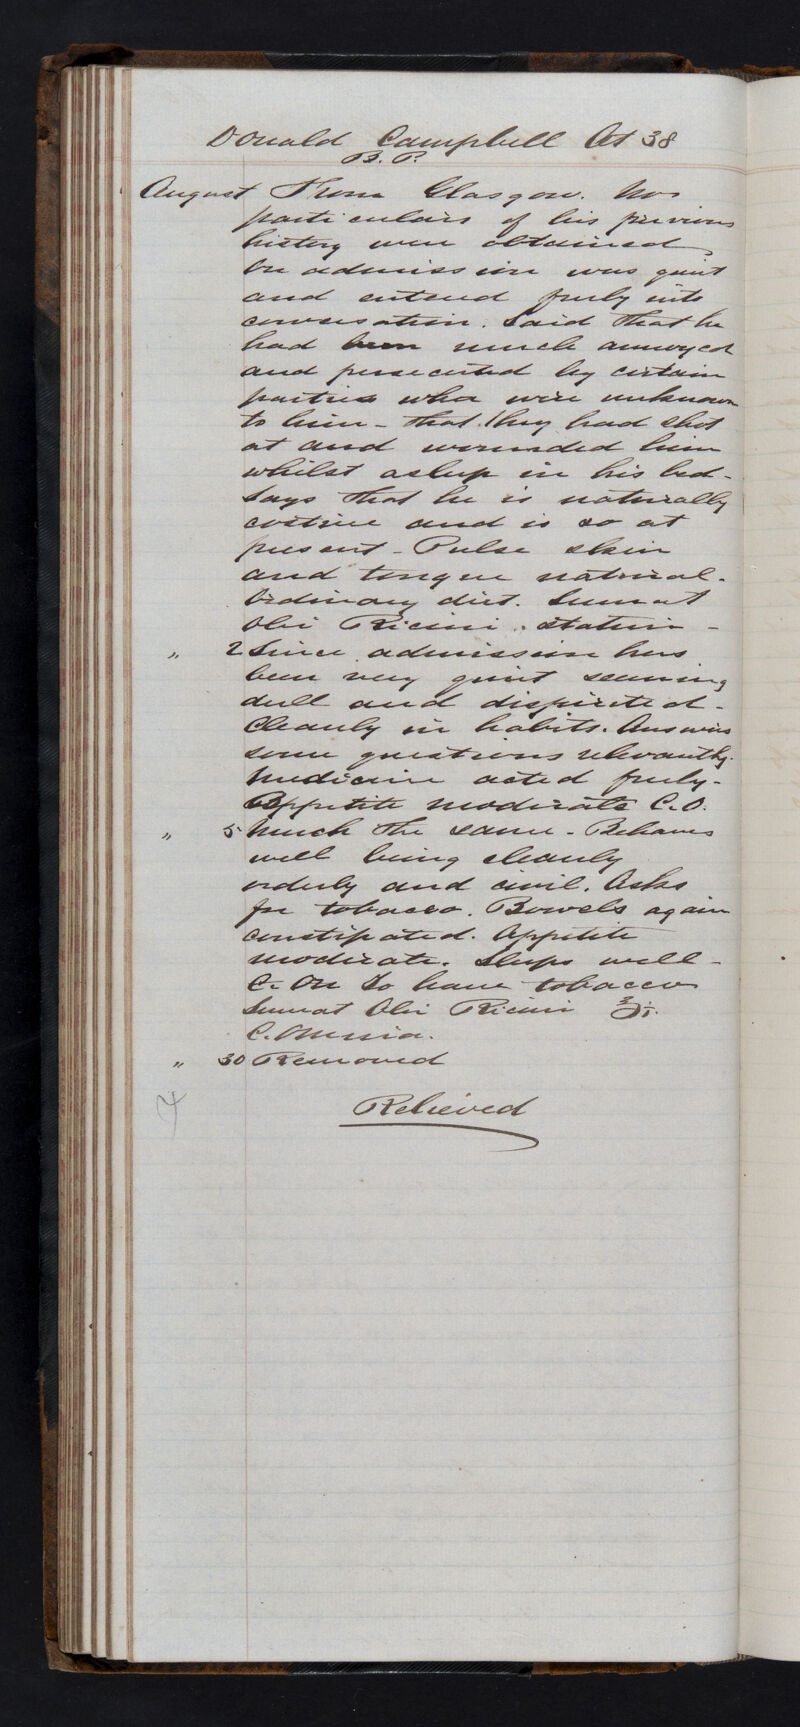 Donald Campbell Æt 38
B. P.
August From Glasgow. No
particulars of his previous
history were obtained
On admission was quiet
and entered freely into
conversation. Said that he
had been much annoyed
and persecuted by certain
parties who were unknown
to him - that they had shot
at and wounded him
whilst asleep in his bed -
Says that he is naturally
costive and is so at
present - Pulse skin
and tongue natural -
Ordinary diet. Sumat
Olei Ricini statim -
" 2 Since admission has
been very quiet seeming
dull and dispirited -
Cleanly in habits. Answers
some questions relevantly.
Medicine acted freely -
Appetite moderate C. O.
" 5 Much the same - Behaves
well being cleanly
orderly and civil. Asks
for tobacco. Bowels again
constipated. Appetite
moderate. Sleeps well -
To have tobacco
Sumat Olei Ricini ℥i.
C. Omnia.
" 30 Removed
Relieved